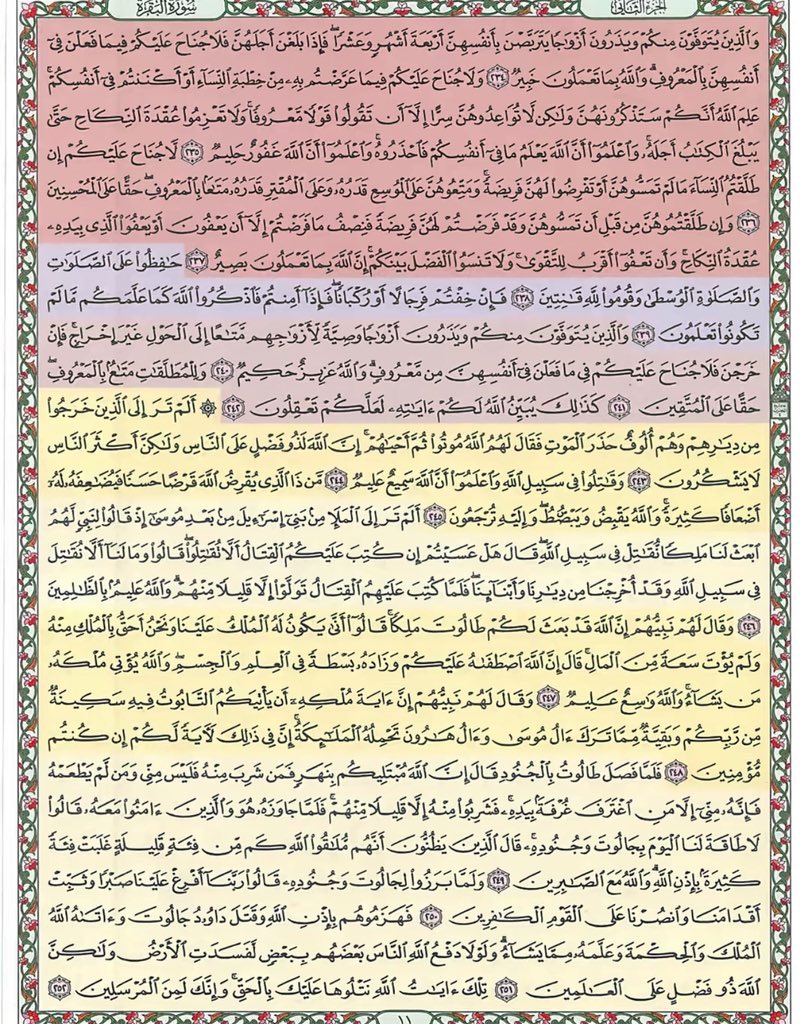 الجزء الثاني سورة البقرة
وَالَّذِينَ يُتَوَفَّوْنَ مِنكُمْ وَيَذَرُونَ أَزْوَاجًا يَتَرَبَّصْنَ بِأَنفُسِهِنَّ أَرْبَعَةَ أَشْهُرٍ وَعَشْرًا ۖ فَإِذَا بَلَغْنَ أَجَلَهُنَّ فَلَا جُنَاحَ عَلَيْكُمْ فِيمَا فَعَلْنَ فِي
أَنفُسِهِنَّ بِالْمَعْرُوفِ ۗ وَاللَّهُ بِمَا تَعْمَلُونَ خَبِيرٌ ٢٣٤ وَلَا جُنَاحَ عَلَيْكُمْ فِيمَا عَرَّضْتُم بِهِ مِنْ خِطْبَةِ النِّسَاءِ أَوْ أَكْنَنتُمْ فِي أَنفُسِكُمْ ۚ
عَلِمَ اللَّهُ أَنَّكُمْ سَتَذْكُرُونَهُنَّ وَلَٰكِن لَّا تُوَاعِدُوهُنَّ سِرًّا إِلَّا أَن تَقُولُوا قَوْلًا مَّعْرُوفًا ۚ وَلَا تَعْزِمُوا عُقْدَةَ النِّكَاحِ حَتَّىٰ
يَبْلُغَ الْكِتَابُ أَجَلَهُ ۚ وَاعْلَمُوا أَنَّ اللَّهَ يَعْلَمُ مَا فِي أَنفُسِكُمْ فَاحْذَرُوهُ ۚ وَاعْلَمُوا أَنَّ اللَّهَ غَفُورٌ حَلِيمٌ ٢٣٥ لَّا جُنَاحَ عَلَيْكُمْ إِن
طَلَّقْتُمُ النِّسَاءَ مَا لَمْ تَمَسُّوهُنَّ أَوْ تَفْرِضُوا لَهُنَّ فَرِيضَةً ۚ وَمَتِّعُوهُنَّ عَلَى الْمُوسِعِ قَدَرُهُ وَعَلَى الْمُقْتِرِ قَدَرُهُ مَتَاعًا بِالْمَعْرُوفِ ۖ حَقًّا عَلَى الْمُحْسِنِينَ
٢٣٦ وَإِن طَلَّقْتُمُوهُنَّ مِن قَبْلِ أَن تَمَسُّوهُنَّ وَقَدْ فَرَضْتُمْ لَهُنَّ فَرِيضَةً فَنِصْفُ مَا فَرَضْتُمْ إِلَّا أَن يَعْفُونَ أَوْ يَعْفُوَ الَّذِي بِيَدِهِ
عُقْدَةُ النِّكَاحِ ۚ وَأَن تَعْفُوا أَقْرَبُ لِلتَّقْوَىٰ ۚ وَلَا تَنسَوُا الْفَضْلَ بَيْنَكُمْ ۚ إِنَّ اللَّهَ بِمَا تَعْمَلُونَ بَصِيرٌ ٢٣٧ حَافِظُوا عَلَى الصَّلَوَاتِ
وَالصَّلَاةِ الْوُسْطَىٰ وَقُومُوا لِلَّهِ قَانِتِينَ ٢٣٨ فَإِنْ خِفْتُمْ فَرِجَالًا أَوْ رُكْبَانًا ۖ فَإِذَا أَمِنتُمْ فَاذْكُرُوا اللَّهَ كَمَا عَلَّمَكُم مَّا لَمْ
تَكُونُوا تَعْلَمُونَ ٢٣٩ وَالَّذِينَ يُتَوَفَّوْنَ مِنكُمْ وَيَذَرُونَ أَزْوَاجًا وَصِيَّةً لِّأَزْوَاجِهِم مَّتَاعًا إِلَى الْحَوْلِ غَيْرَ إِخْرَاجٍ ۚ فَإِنْ
خَرَجْنَ فَلَا جُنَاحَ عَلَيْكُمْ فِي مَا فَعَلْنَ فِي أَنفُسِهِنَّ مِن مَّعْرُوفٍ ۗ وَاللَّهُ عَزِيزٌ حَكِيمٌ ٢٤٠ وَلِلْمُطَلَّقَاتِ مَتَاعٌ بِالْمَعْرُوفِ ۖ
حَقًّا عَلَى الْمُتَّقِينَ ٢٤١ كَذَٰلِكَ يُبَيِّنُ اللَّهُ لَكُمْ آيَاتِهِ لَعَلَّكُمْ تَعْقِلُونَ ٢٤٢ ۞ أَلَمْ تَرَ إِلَى الَّذِينَ خَرَجُوا
مِن دِيَارِهِمْ وَهُمْ أُلُوفٌ حَذَرَ الْمَوْتِ فَقَالَ لَهُمُ اللَّهُ مُوتُوا ثُمَّ أَحْيَاهُمْ ۚ إِنَّ اللَّهَ لَذُو فَضْلٍ عَلَى النَّاسِ وَلَٰكِنَّ أَكْثَرَ النَّاسِ
لَا يَشْكُرُونَ ٢٤٣ وَقَاتِلُوا فِي سَبِيلِ اللَّهِ وَاعْلَمُوا أَنَّ اللَّهَ سَمِيعٌ عَلِيمٌ ٢٤٤ مَّن ذَا الَّذِي يُقْرِضُ اللَّهَ قَرْضًا حَسَنًا فَيُضَاعِفَهُ لَهُ
أَضْعَافًا كَثِيرَةً ۚ وَاللَّهُ يَقْبِضُ وَيَبْسُطُ وَإِلَيْهِ تُرْجَعُونَ ٢٤٥ أَلَمْ تَرَ إِلَى الْمَلَإِ مِن بَنِي إِسْرَائِيلَ مِن بَعْدِ مُوسَىٰ إِذْ قَالُوا لِنَبِيٍّ لَّهُمُ
ابْعَثْ لَنَا مَلِكًا نُّقَاتِلْ فِي سَبِيلِ اللَّهِ ۖ قَالَ هَلْ عَسَيْتُمْ إِن كُتِبَ عَلَيْكُمُ الْقِتَالُ أَلَّا تُقَاتِلُوا ۖ قَالُوا وَمَا لَنَا أَلَّا نُقَاتِلَ
فِي سَبِيلِ اللَّهِ وَقَدْ أُخْرِجْنَا مِن دِيَارِنَا وَأَبْنَائِنَا ۖ فَلَمَّا كُتِبَ عَلَيْهِمُ الْقِتَالُ تَوَلَّوْا إِلَّا قَلِيلًا مِّنْهُمْ ۗ وَاللَّهُ عَلِيمٌ بِالظَّالِمِينَ
٢٤٦ وَقَالَ لَهُمْ نَبِيُّهُمْ إِنَّ اللَّهَ قَدْ بَعَثَ لَكُمْ طَالُوتَ مَلِكًا ۚ قَالُوا أَنَّىٰ يَكُونُ لَهُ الْمُلْكُ عَلَيْنَا وَنَحْنُ أَحَقُّ بِالْمُلْكِ مِنْهُ
وَلَمْ يُؤْتَ سَعَةً مِّنَ الْمَالِ ۚ قَالَ إِنَّ اللَّهَ اصْطَفَاهُ عَلَيْكُمْ وَزَادَهُ بَسْطَةً فِي الْعِلْمِ وَالْجِسْمِ ۖ وَاللَّهُ يُؤْتِي مُلْكَهُ
مَن يَشَاءُ ۚ وَاللَّهُ وَاسِعٌ عَلِيمٌ ٢٤٧ وَقَالَ لَهُمْ نَبِيُّهُمْ إِنَّ آيَةَ مُلْكِهِ أَن يَأْتِيَكُمُ التَّابُوتُ فِيهِ سَكِينَةٌ
مِّن رَّبِّكُمْ وَبَقِيَّةٌ مِّمَّا تَرَكَ آلُ مُوسَىٰ وَآلُ هَارُونَ تَحْمِلُهُ الْمَلَائِكَةُ ۚ إِنَّ فِي ذَٰلِكَ لَآيَةً لَّكُمْ إِن كُنتُم
مُّؤْمِنِينَ ٢٤٨ فَلَمَّا فَصَلَ طَالُوتُ بِالْجُنُودِ قَالَ إِنَّ اللَّهَ مُبْتَلِيكُم بِنَهَرٍ فَمَن شَرِبَ مِنْهُ فَلَيْسَ مِنِّي وَمَن لَّمْ يَطْعَمْهُ
فَإِنَّهُ مِنِّي إِلَّا مَنِ اغْتَرَفَ غُرْفَةً بِيَدِهِ ۚ فَشَرِبُوا مِنْهُ إِلَّا قَلِيلًا مِّنْهُمْ ۚ فَلَمَّا جَاوَزَهُ هُوَ وَالَّذِينَ آمَنُوا مَعَهُ قَالُوا
لَا طَاقَةَ لَنَا الْيَوْمَ بِجَالُوتَ وَجُنُودِهِ ۚ قَالَ الَّذِينَ يَظُنُّونَ أَنَّهُم مُّلَاقُو اللَّهِ كَم مِّن فِئَةٍ قَلِيلَةٍ غَلَبَتْ فِئَةً
كَثِيرَةً بِإِذْنِ اللَّهِ ۗ وَاللَّهُ مَعَ الصَّابِرِينَ ٢٤٩ وَلَمَّا بَرَزُوا لِجَالُوتَ وَجُنُودِهِ قَالُوا رَبَّنَا أَفْرِغْ عَلَيْنَا صَبْرًا وَثَبِّتْ
أَقْدَامَنَا وَانصُرْنَا عَلَى الْقَوْمِ الْكَافِرِينَ ٢٥٠ فَهَزَمُوهُم بِإِذْنِ اللَّهِ وَقَتَلَ دَاوُودُ جَالُوتَ وَآتَاهُ اللَّهُ
الْمُلْكَ وَالْحِكْمَةَ وَعَلَّمَهُ مِمَّا يَشَاءُ ۗ وَلَوْلَا دَفْعُ اللَّهِ النَّاسَ بَعْضَهُم بِبَعْضٍ لَّفَسَدَتِ الْأَرْضُ وَلَٰكِنَّ
اللَّهَ ذُو فَضْلٍ عَلَى الْعَالَمِينَ ٢٥١ تِلْكَ آيَاتُ اللَّهِ نَتْلُوهَا عَلَيْكَ بِالْحَقِّ ۚ وَإِنَّكَ لَمِنَ الْمُرْسَلِينَ ٢٥٢
١١